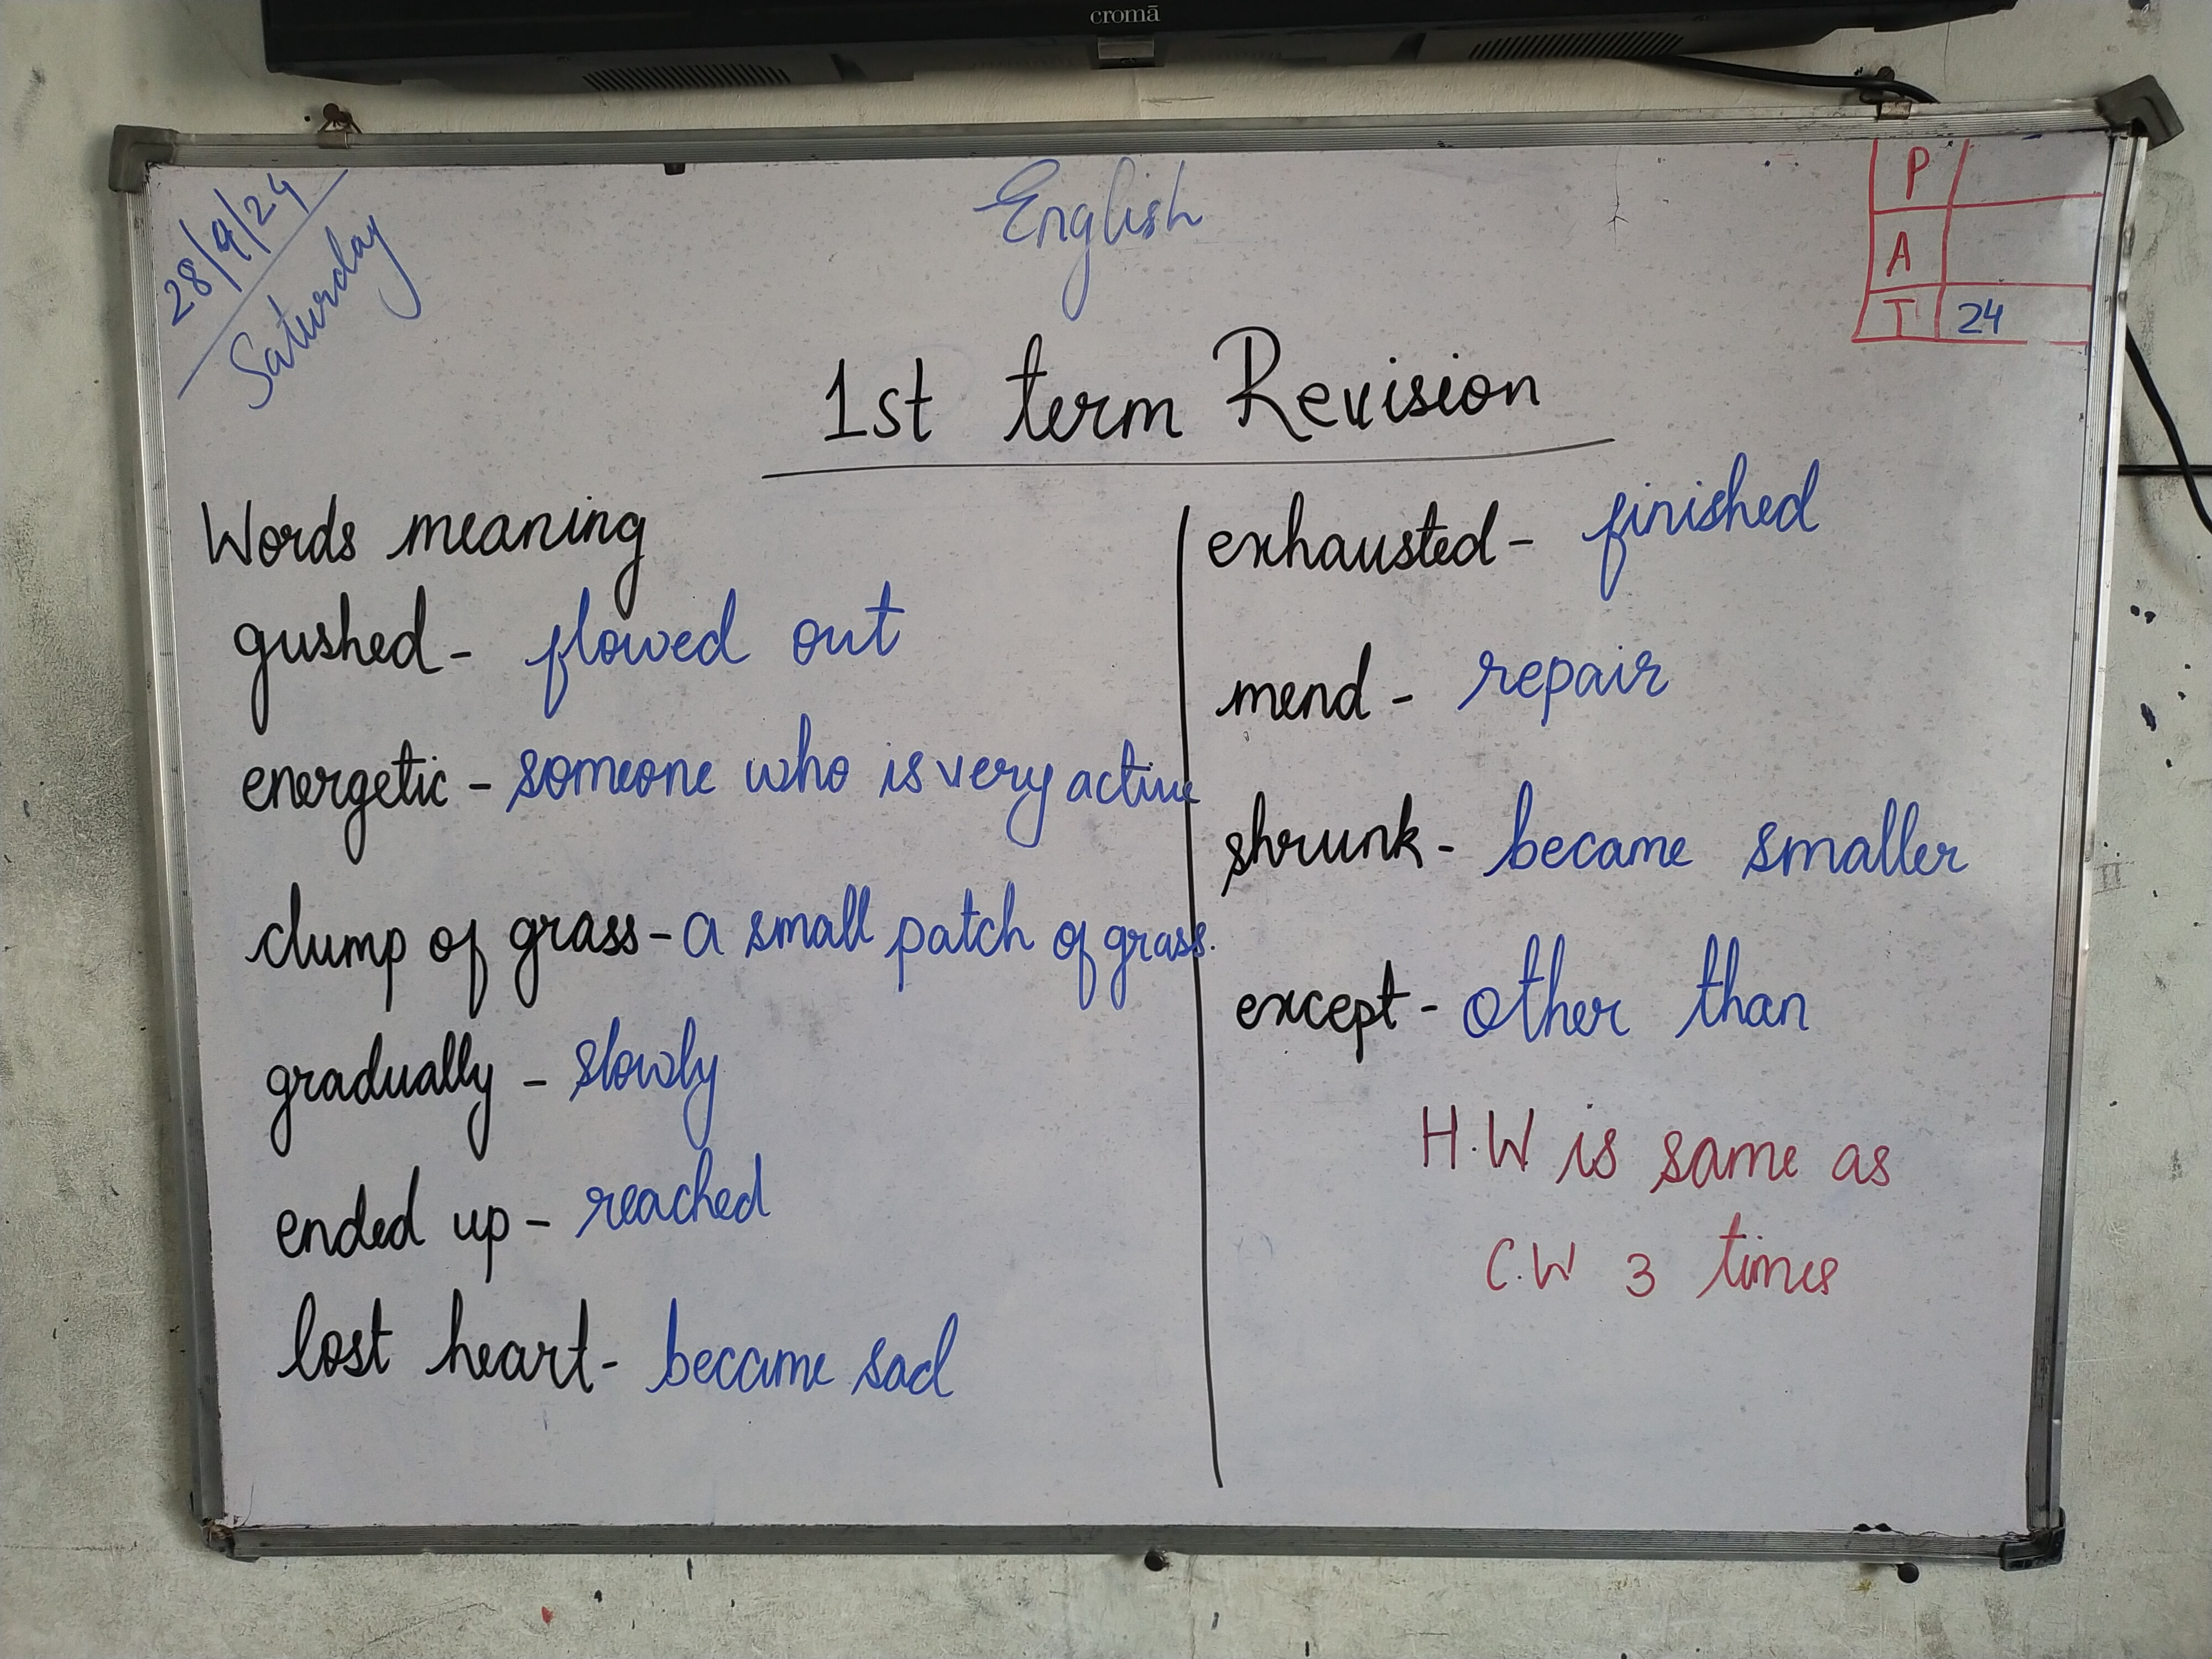 cromā
28/9/24
Saturday
English
P
A
T 24
1st term Revision
Words meaning
gushed - flowed out
energetic - someone who is very active
clump of grass - a small patch of grass.
gradually - slowly
ended up - reached
lost heart - became sad
exhausted - finished
mend - repair
shrunk - became smaller
except - other than
H.W is same as
C.W 3 times